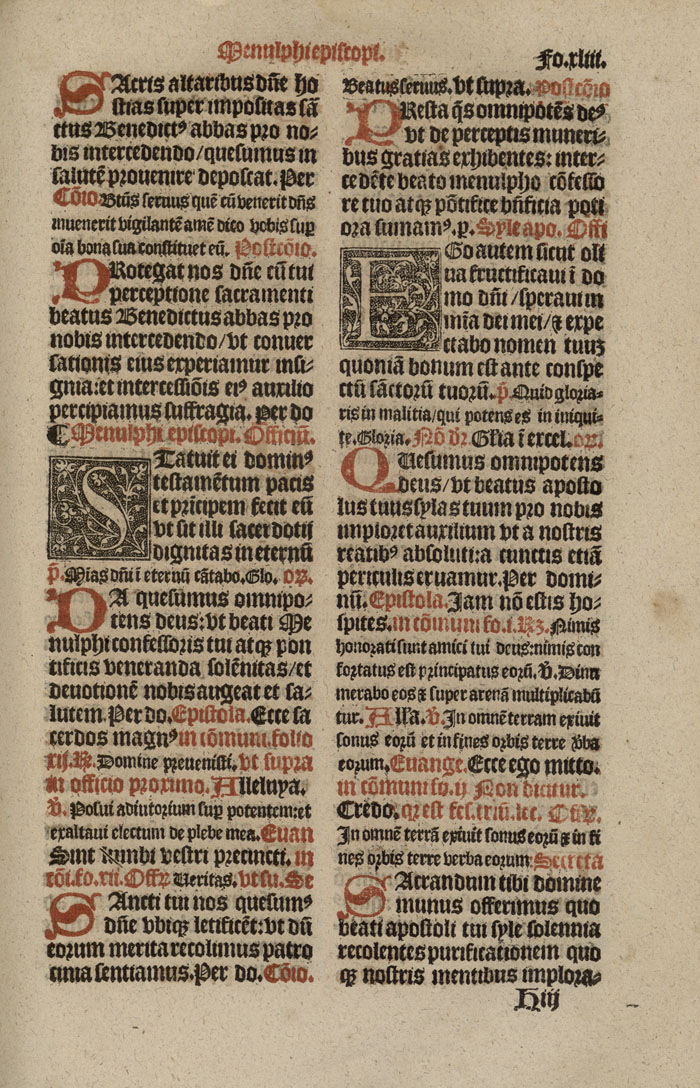 Menulphi episcopi.
Fo.xliii.
SAcris altaribus dñe ho
stias super impositas sã
ctus Benedictꝰ abbas pro no-
bis intercedendo/quesumus in
salutẽ prouenire deposcat. Per
Cõio. Btũs seruus quẽ cũ venerit dñs
inuenerit vigilantẽ amẽ dico vobis sup̲
oĩa bona sua constituet eũ. Postcõio.
PRotegat nos dñe cũ tui
perceptione sacramenti
beatus Benedictus abbas pro
nobis intercedendo/vt conuer
sationis eius experiamur insi-
gnia:et intercessiõis eiꝰ auxilio
percipiamus suffragia. Per do
¶ Menulphi episcopi. Officiũ.
STatuit ei dominꝰ
testamẽtum pacis
et prĩcipem fecit eũ
vt sit illi sacerdotij
dignitas in eternũ
p̃. Mĩas dñi ĩ eternũ cãtabo. Glo. or̃.
DA quesumus omnipo-
tens deus: vt beati Me
nulphi confessoris tui atqꝫ pon
tificis veneranda solẽnitas/et
deuotionẽ nobis augeat et sa-
lutem. Per do. Epistola. Ecce sa
cerdos magnꝰ in cõmuni.folio
xij. R̃. Domine preuenisti. vt supra
in officio proximo. Alleluya.
v̓. Posui adiutorium sup̲ potentem:et
exaltaui electum de plebe mea. Euan
Sint lumbi vestri precincti. in
cõi.fo.xii. Offr̃ Ueritas. vt su. Se
SAncti tui nos quesumꝰ
dñe vbiqꝫ letificẽt: vt dũ
eorum merita recolimus patro
cinia sentiamus. Per do. Cõio.
Beatus seruus. vt supra. Postcõio
PResta q̃s omnipotẽs deꝰ
vt de perceptis muneri-
bus gratias exhibentes: inter-
cedẽte beato menulpho cõfesso
re tuo atqꝫ põtifice bñficia poti
ora sumamꝰ. p. Syle apo. Offi
EGo autem sicut oli
ua fructificaui ĩ do
mo dñi /speraui in
mĩa dei mei/⁊ expe
ctabo nomen tuuꝫ
quoniã bonum est ante conspe
ctũ sãctorũ tuorũ. p̃. Quid gloria-
ris in malitia/qui potens es in iniqui-
te. Gloria. Nõ dr̃. Glia ĩ excel. or̃.
QUesumus omnipotens
deus/vt beatus aposto
lus tuus sylas tuum pro nobis
imploret auxilium vt a nostris
reatibꝰ absoluti:a cunctis etiã
periculis eruamur. Per domi-
nũ. Epistola. Jam nõ estis ho-
spites. in cõmuni fo.i. Rꝫ. Nimis
honorati sunt amici tui deus:nimis con
fortatus est principatus eorũ. v̓. Dinu
merabo eos ⁊ super arenã multiplicabũ
tur. Alla. v̓. Jn omnẽ terram exiuit
sonus eorũ et in fines orbis terre v̓ba
eorum. Euange. Ecce ego mitto.
in cõmuni fo.ij. Non dicitur.
Credo. qr̃ est fes.triũ.lec. Offr̃.
Jn omnẽ terrã exiuit sonus eorũ ⁊ in fi
nes orbis terre verba eorum. Secreta
SAcrandum tibi domine
munus offerimus quo
beati apostoli tui syle solennia
recolentes purificationem quo
qꝫ nostris mentibus implora-
Hiij